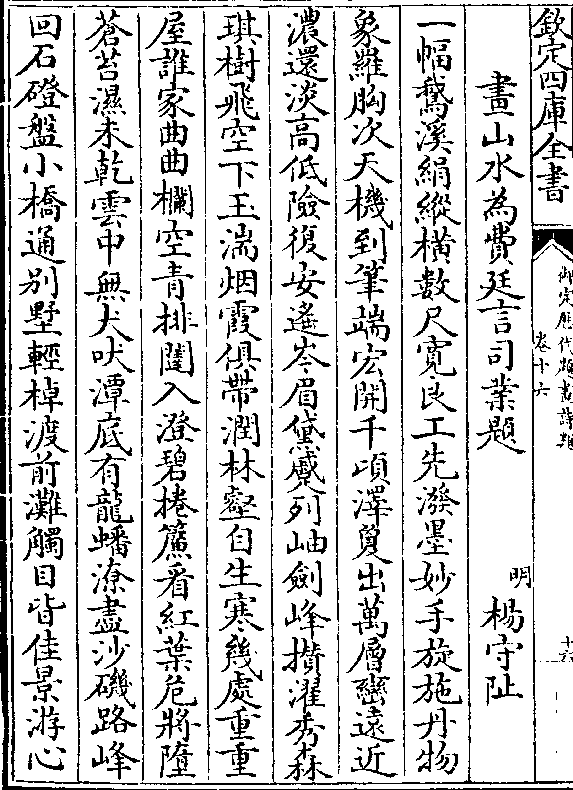 欽定四庫全書
御定歷代題畫詩類
卷十六
十六
畫山水為費廷言司業題
明 楊守阯
一幅鵝溪絹縱橫數尺寛良工先潑墨妙手旋施丹物
象羅胸次天機到筆端宏開千頃澤夐出萬層巒遠近
濃還淡高低險復安遙岑眉黛蹙列岫劍峰攅濯秀森
琪樹飛空下玉湍烟霞俱帶潤林壑自生寒幾處重重
屋誰家曲曲欄空青排闥入澄碧捲簾看紅葉危將墮
蒼苔濕未乾雲中無犬吠潭底有龍蟠潦盡沙磯路峰
回石磴盤小橋通別墅輕棹渡前灘觸目皆佳景游心